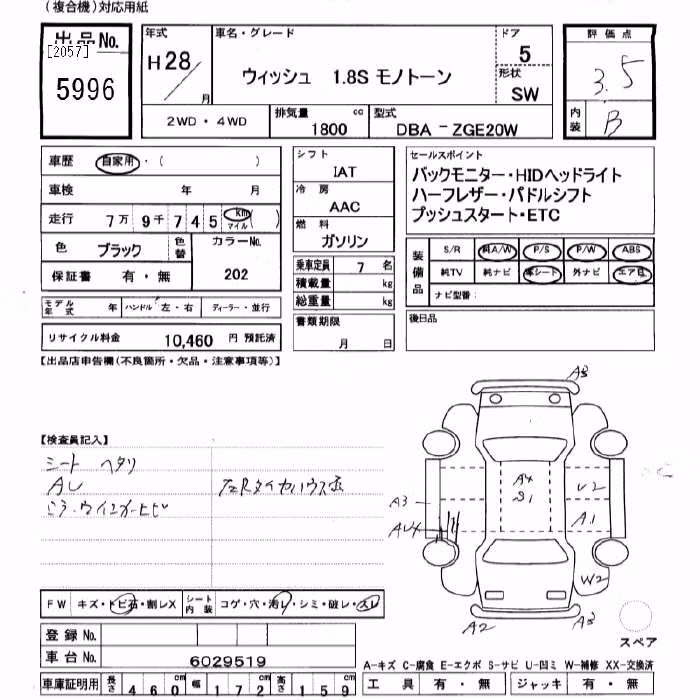 (複合機)対応用紙
出品No.
[2057]
5996
年式
H28/
月
車名・グレード
ウィッシュ 1.8S モノトーン
ドア
5
形状
SW
評価点
3.5
内装
B
2WD・4WD
排気量
1800 cc
型式
DBA-ZGE20W
車歴 自家用・( )
車検 年 月
走行 7万9千745 km マイル ( )
色 ブラック
色替
カラーNo.
202
保証書 有・無
モデル年式 年
ハンドル 左・右
ディーラー・並行
リサイクル料金 10,460 円 預託済
シフト
IAT
冷房
AAC
燃料
ガソリン
乗車定員 7 名
積載量 kg
総重量 kg
書類期限
月 日
セールスポイント
バックモニター・HIDヘッドライト
ハーフレザー・パドルシフト
プッシュスタート・ETC
装備品
S/R 純A/W P/S P/W ABS
純TV 純ナビ 革シート 外ナビ エアB
ナビ型番:
後日品
【出品店申告欄(不良箇所・欠品・注意事項等)】
【検査員記入】
シート ヘタリ
AU
ミラーウインカーヒビ
左Rタイヤハウス
A3
A4
S1
U2
A3
A1
AU4
W2
A2
A3
スペア
FW キズ・トビ石・割レX
シート内装 コゲ・穴・汚レ・シミ・破レ・スレ
登録No.
車台No. 6029519
車庫証明用 長さ 460cm 幅 172cm 高さ 159cm
A-キズ C-腐食 E-エクボ S-サビ U-凹ミ W-補修 XX-交換済
工具 有・無 ジャッキ 有・無